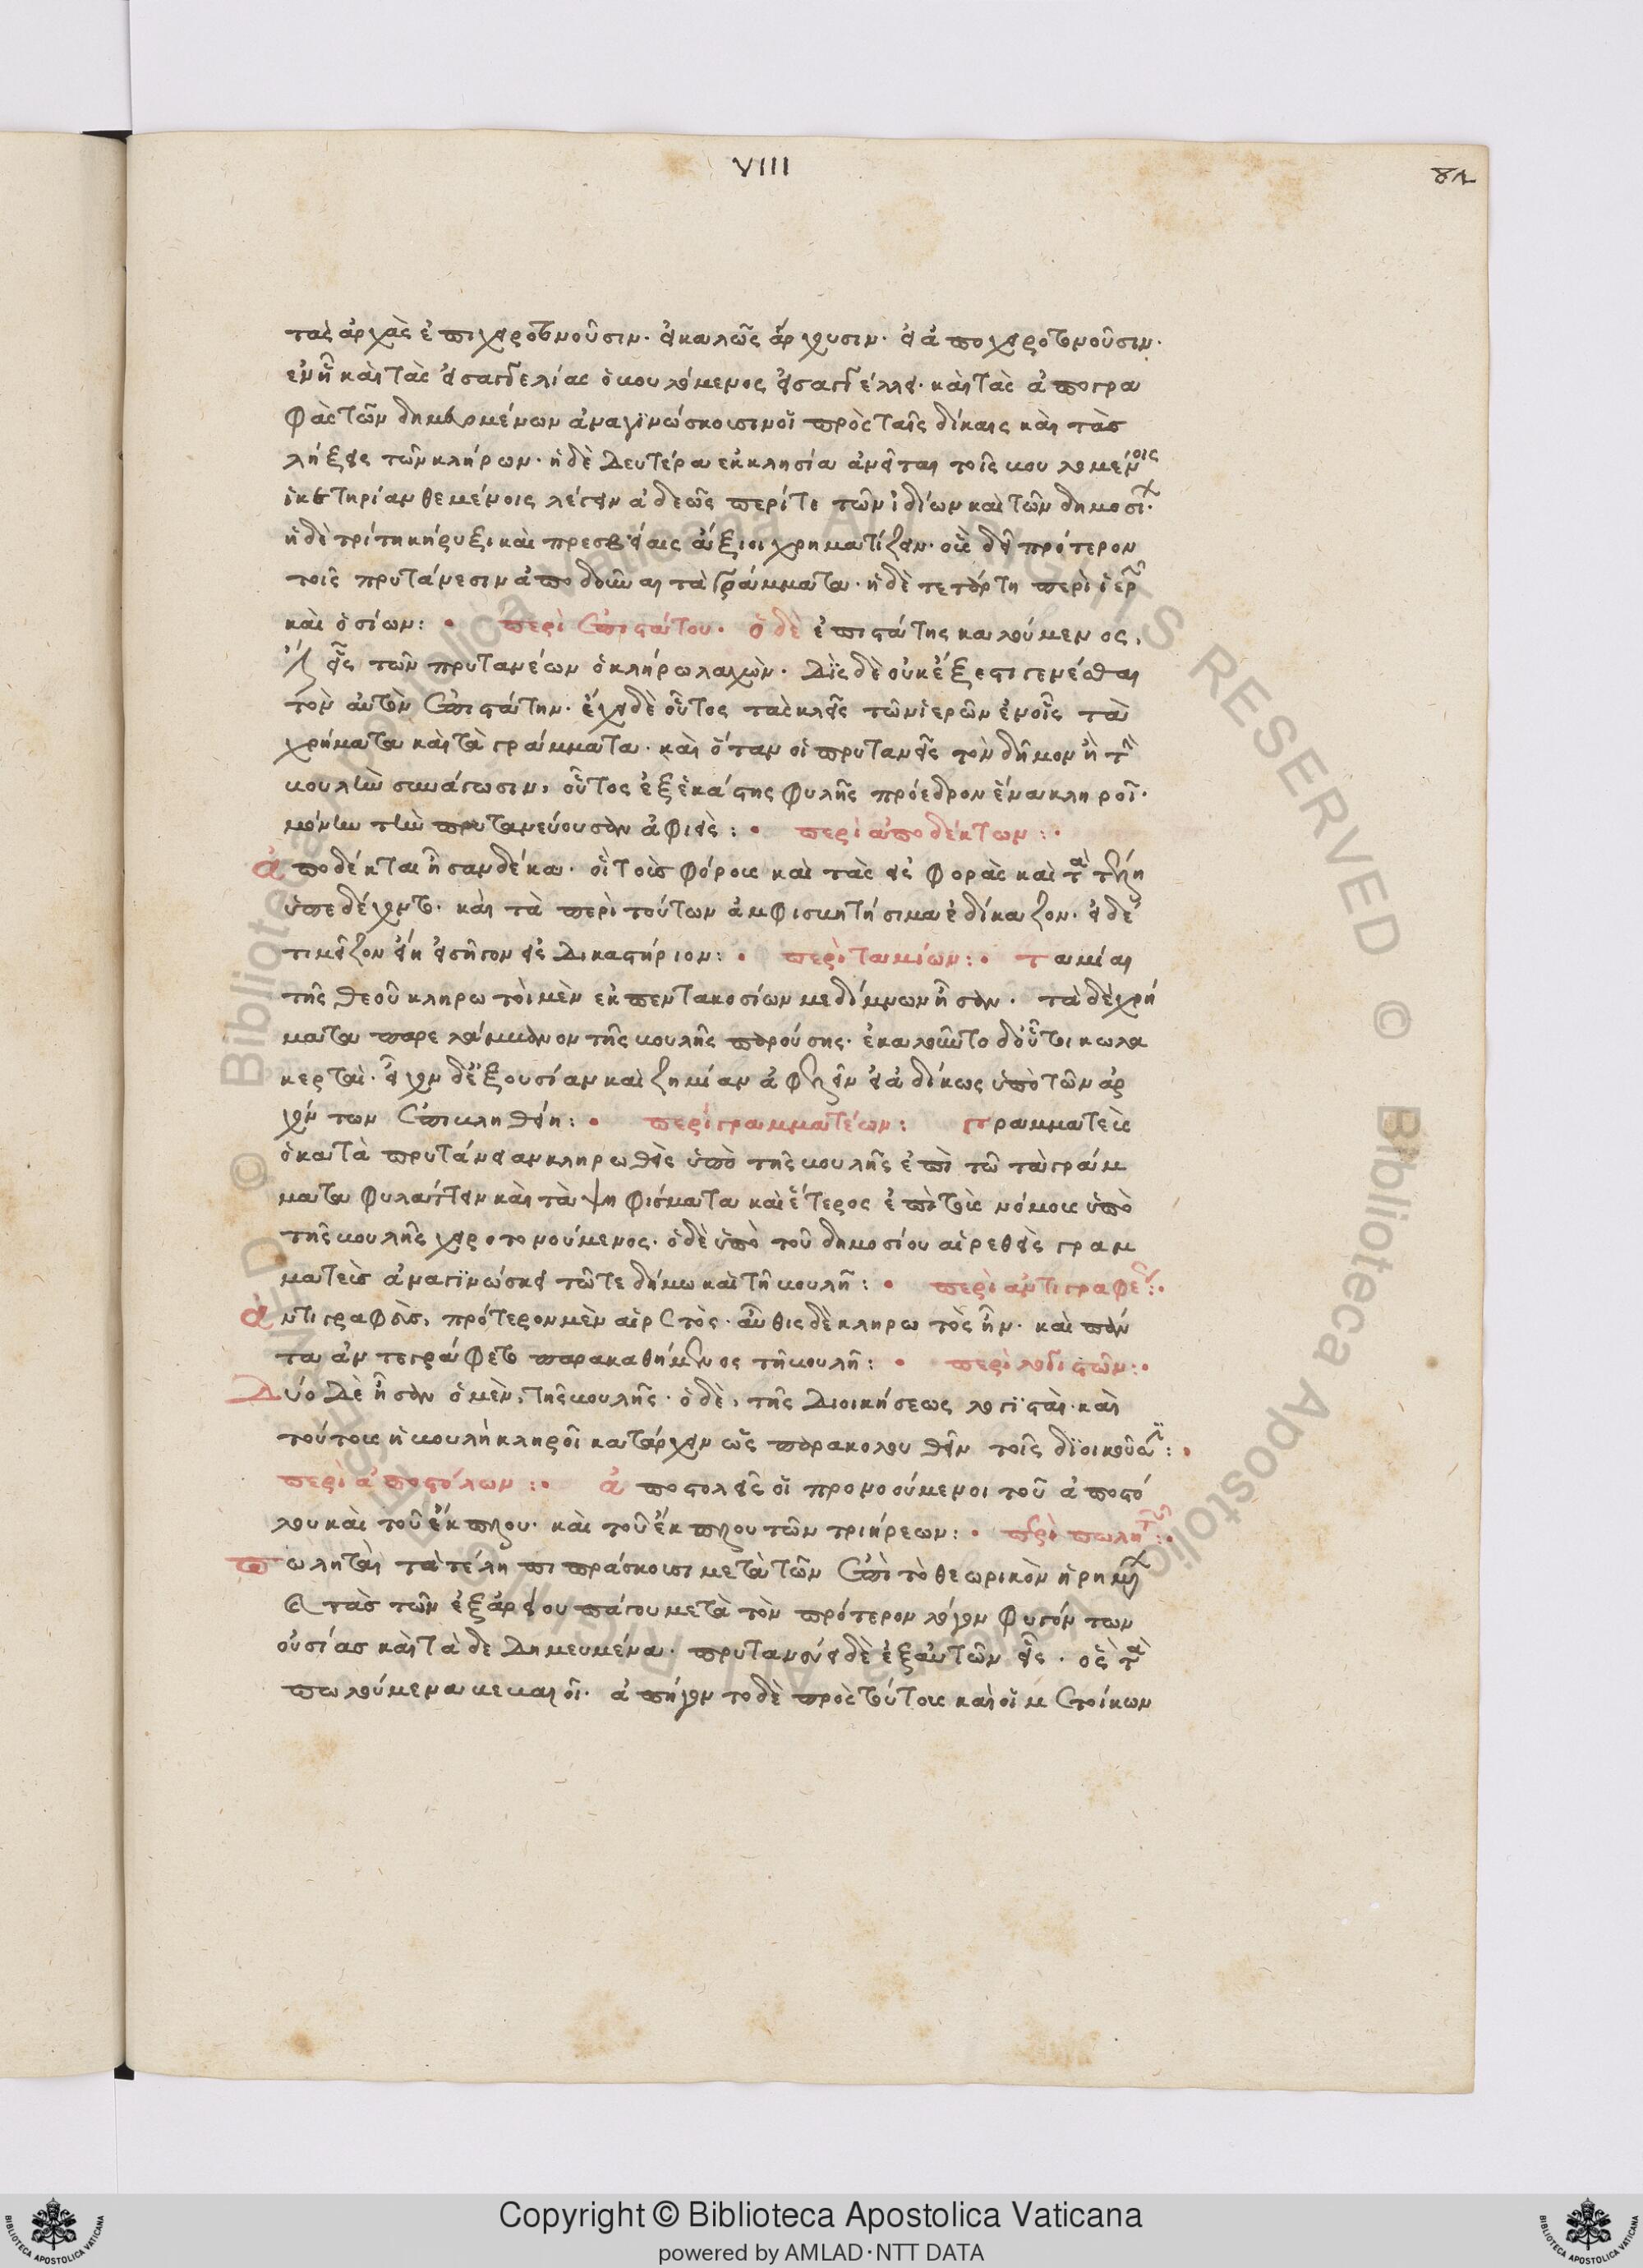 VIII
τὰς ἀρχὰς ἐπιχειροτονοῦσιν· εἰ καλῶς ἄρχουσιν· εἰ ἀποχειροτονοῦσιν·
ἐν ᾗ καὶ τὰς εἰσαγγελίας ὁ βουλόμενος εἰσαγγέλλει· καὶ τὰς ἀπογρα
φὰς τῶν δημευομένων ἀναγϊνώσκουσιν οἱ πρὸς ταῖς δίκαις καὶ τὰς
λήξεις τῶν κλήρων· ἡ δὲ δευτέρα ἐκκλησία ἀνεῖται τοῖς βουλομένοις
ἱκετηρίαν θεμένοις λέγειν ἀδεῶς περί τε τῶν ἰδίων καὶ τῶν δημοσί
ἡ δὲ τρίτη κήρυξι καὶ πρεσβείαις ἀξιοῖ χρηματίζειν· οὓς δεῖ πρότερον
τοῖς πρυτάνεσιν ἀποδοῦναι τὰ γράμματα· ἡ δὲ τετάρτη περὶ ἱερῶν
καὶ ὁσίων: • περὶ ἐπιστάτου· ὁ δὲ ἐπιστάτης καλούμενος,
ἔστιν εἷς τῶν πρυτανέων ὁ κλήρω λαχὼν· δὶς δὲ οὐκ ἔξεστι γενέσθαι
τὸν αὐτὸν ἐπιστάτην· ἔχει δὲ οὗτος τὰς κλεῖς τῶν ἱερῶν ἐν οἷς τὰ
χρήματα καὶ τὰ γράμματα· καὶ ὅταν οἱ πρυτανεῖς τὸν δῆμον ἢ τὴν
βουλὴν συνάγωσιν, οὗτος ἐξ ἑκάστης φυλῆς πρόεδρον ἕνα κληροῖ·
μόνην τὴν πρυτανεύουσαν ἀφιεὶς: • περὶ ἀποδέκτων: •
ἀποδέκται ἦσαν δέκα· οἳ τοὺς φόρους καὶ τὰς εἰσφορὰς καὶ τὰ τέλη
ὑπεδέχοντο· καὶ τὰ περὶ τούτων ἀμφισβητήσιμα ἐδίκαζον· εἰ δέ
τι μεῖζον εἴη εἰσῆγον εἰς δικαστήριον: • περὶ ταμίων: • ταμίαι
τῆς θεοῦ κληρωτοὶ μὲν ἐκ πεντακοσίων μεδίμνων ἦσαν· τὰ δὲ χρή
ματα παρελάμβανον τῆς βουλῆς παρούσης· ἐκαλοῦντο δ' οὗτοι κωλα
κερταὶ· εἶχον δ' ἐξουσίαν καὶ ζημίαν ἀφελεῖν εἰ ἀδίκως ὑπὸ τῶν ἀρ
χόντων ἐπιβληθείη: • περὶ γραμματέων: γραμματεὺς
ὁ κατὰ πρυτάνειαν κληρωθεὶς ὑπὸ τῆς βουλῆς ἐπὶ τῶ τὰ γράμ
ματα φυλάττειν καὶ τὰ ψηφίσματα καὶ ἕτερος ἐπὶ τοὺς νόμους ὑπὸ
τῆς βουλῆς χειροτονούμενος· ὁ δὲ ὑπὸ τοῦ δημοσίου αἱρεθεὶς γραμ
ματεὺς ἀναγϊνώσκει τῶ τε δήμω καὶ τῆ βουλῆ: • περὶ ἀντιγραφέων: •
ἀντιγραφεὺς, πρότερον μὲν αἱρετὸς· αὖθις δὲ κληρωτὸς ἦν· καὶ πάν
τα ἀντεγράφετο παρακαθήμενος τῆ βουλῆ: • περὶ λογιστῶν: •
Δύο δὲ ἦσαν ὁ μὲν, τῆς βουλῆς· ὁ δὲ, τῆς διοικήσεως λογϊσταὶ· καὶ
τούτους ἡ βουλὴ κληροῖ κατ' ἀρχὴν ὡς παρακολουθεῖν τοῖς δϊοικοῦσιν: •
περὶ ἀποστόλων: • ἀποστολεῖς οἱ προνοούμενοι τοῦ ἀποστό
λου καὶ τοῦ ἔκπλου· καὶ τοῦ ἔκπλου τῶν τριήρεων: • περὶ πωλητῶν: •
πωληταὶ τὰ τέλη πιπράσκουσι μετὰ τῶν ἐπὶ τὸ θεωρικὸν ἡρημένων
καὶ τὰς τῶν ἐξ ἀρείου πάγου μετὰ τὸν πρότερον λόγον φυγόντων
οὐσίας καὶ τὰ δεδημευμένα· πρυτανεύει δὲ ἐξ αὐτῶν εἷς· ὃς τὰ
πωλούμενα βεβαιοῖ· ἀπήγοντο δὲ πρὸς τούτους καὶ οἱ μετοίκων